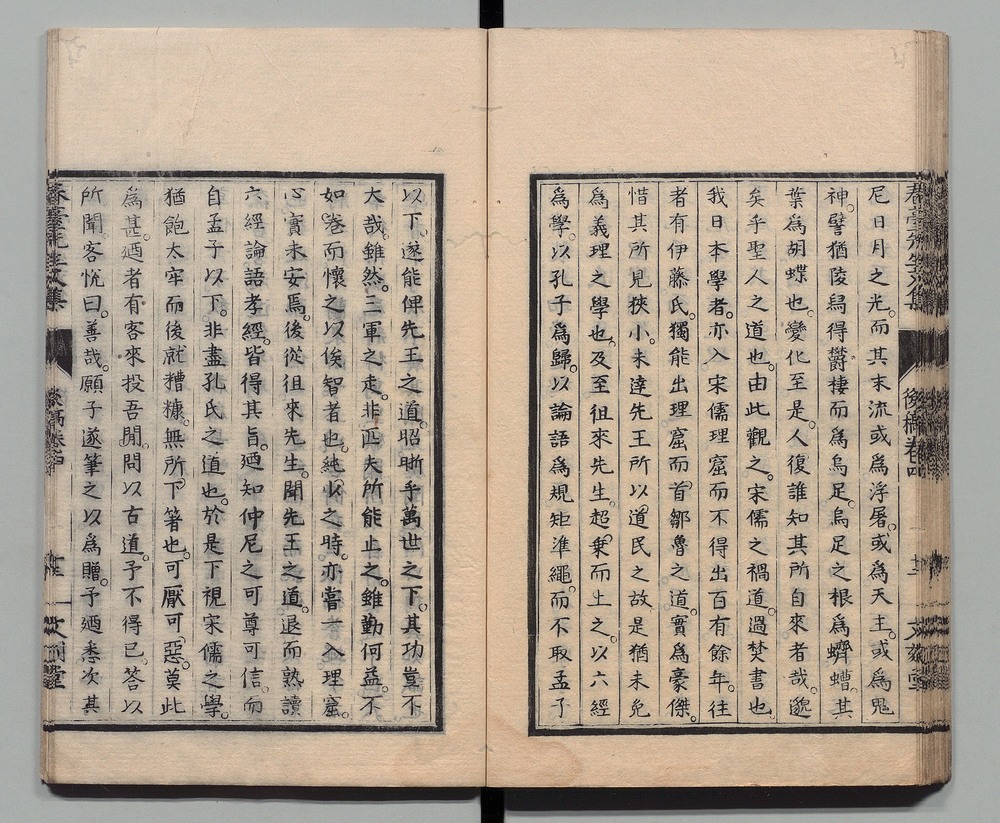 春臺先生文集
後稿卷四
十二
文刻堂
尼日月之光。而其末流或爲浮屠。或爲天主。或爲鬼
神。譬猶陵舄得欝棲而爲烏足。烏足之根爲蠐螬。其
葉爲胡蝶也。變化至是。人復誰知其所自來者哉。邈
矣乎聖人之道也。由此觀之。宋儒之禍道。過焚書也。
我日本學者。亦入宋儒理窟而不得出百有餘年。往
者有伊藤氏。獨能出理窟而首鄒魯之道。實爲豪傑。
惜其所見狹小。未達先王所以道民之故。是猶未免
爲義理之學也。及至徂來先生。超乗而上之。以六經
爲學。以孔子爲歸。以論語爲規矩準繩。而不取孟子
以下。遂能俾先王之道。昭晰乎萬世之下。其功豈不
大哉。雖然。三軍之走。非匹夫所能止之。雖勤何益。不
如卷而懷之。以俟智者也。純少之時。亦嘗入理窟。
心實未安焉。後從徂來先生。聞先王之道。退而熟讀
六經論語孝經。皆得其旨。廼知仲尼之可尊可信。而
自孟子以下。非盡孔氏之道也。於是下視宋儒之學。
猶飽太牢而後就糟糠。無所下箸也。可厭可惡。莫此
爲甚。廼者有客來投吾門。問以古道。予不得已。答以
所聞。客悅曰。善哉。願子遂筆之以爲贈。予廼悉次其
春臺先生文集